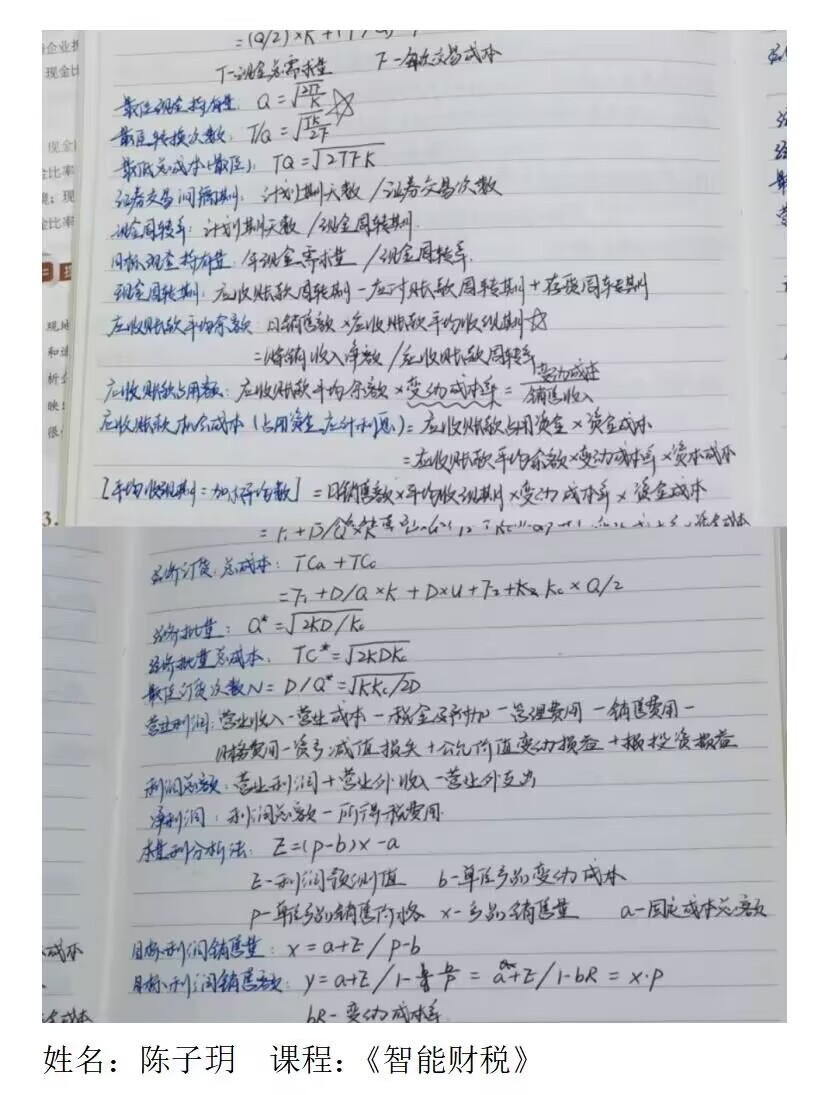 =(Q/2)×K+(T/Q)
T-现金总需求量 F-每次交易成本
最佳现金持有量: Q=√2TF/K ☆
最佳转换次数: T/Q=√TK/2F
最低总成本(最佳): TQ=√2TFK
证券交易间隔期: 计划期天数/证券交易次数
现金周转率: 计划期天数/现金周转期
目标现金持有量: 年现金需求量/现金周转率
现金周转期: 应收账款周转期-应付账款周转期+存货周转期
应收账款平均余额: 日销售额×应收账款平均收现期☆
=赊销收入净额/应收账款周转率
应收账款占用额: 应收账款平均余额×变动成本率=变动成本/销售收入
应收账款机会成本(占用资金应计利息)=应收账款占用资金×资金成本
=应收账款平均余额×变动成本率×资本成本
[平均收现期=加权平均数] =日销售额×平均收现期×变动成本率×资金成本
经济订货总成本: TCa+TCc
=F1+D/Q×K+D×U+F2+Kc×Q/2
经济批量: Q*=√2KD/Kc
经济批量总成本: TC*=√2KDKc
最佳订货次数N=D/Q*=√KKc/2D
营业利润: 营业收入-营业成本-税金及附加-管理费用-销售费用-
财务费用-资产减值损失+公允价值变动损益+投资损益
利润总额: 营业利润+营业外收入-营业外支出
净利润: 利润总额-所得税费用
本量利分析法: E=(p-b)x-a
E-利润预测值 b-单位产品变动成本
p-单位产品销售价格 x-产品销售量 a-固定成本总额
目标利润销售量: x=a+E/p-b
目标利润销售额: y=a+E/1-b/p=a+E/1-bR=x·p
bR-变动成本率
姓名：陈子玥 课程：《智能财税》